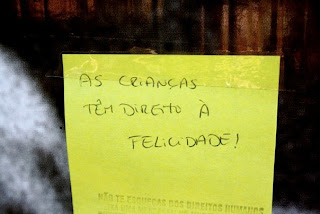 AS CRIANÇAS
TÊM DIREITO À
FELICIDADE!
NÃO TE ESQUEÇAS DOS DIREITOS HUMANOS